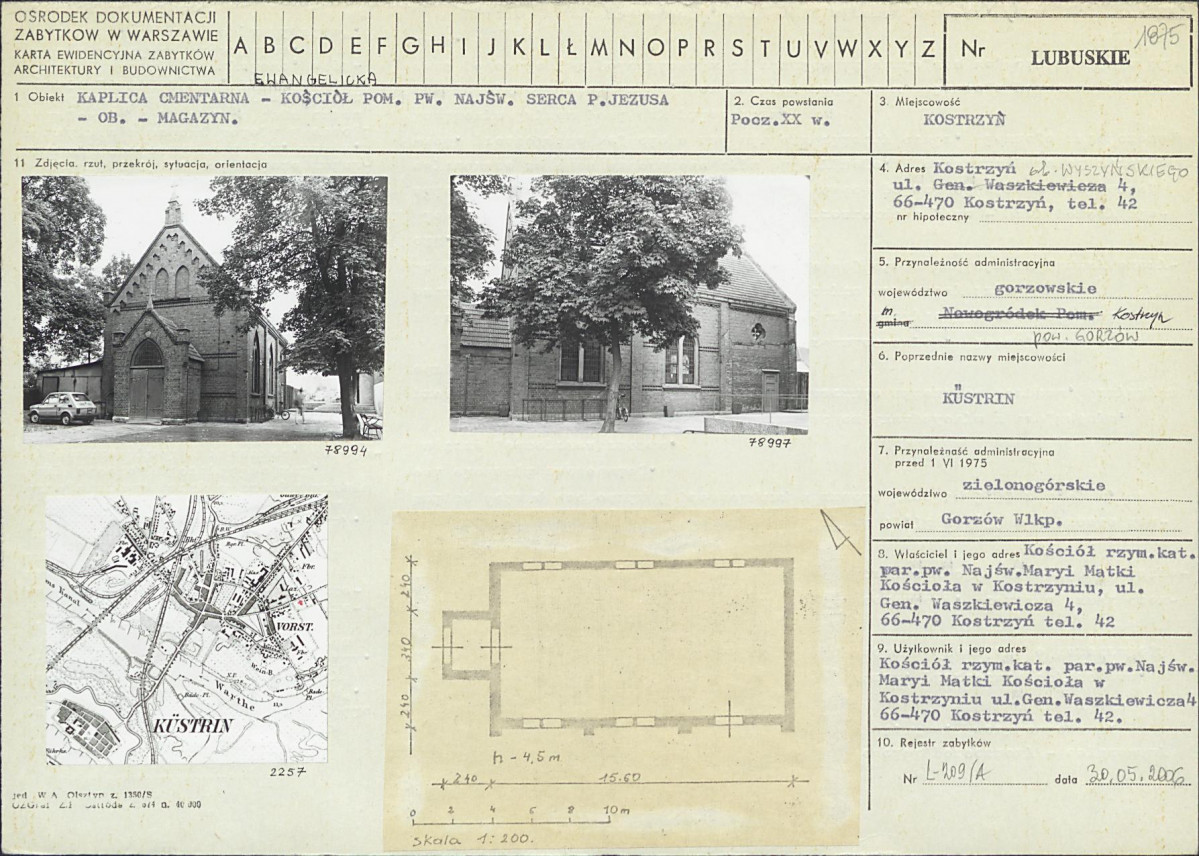 OŚRODEK DOKUMENTACJI
ZABYTKÓW W WARSZAWIE
KARTA EWIDENCYJNA ZABYTKÓW
ARCHITEKTURY I BUDOWNICTWA
A B C D E F G H I J K L Ł M N O P R S T U V W X Y Z
Nr
LUBUSKIE
1875
EWANGELICKA
1 Obiekt KAPLICA CMENTARNA - KOŚCIÓŁ POM. PW. NAJŚW. SERCA P.JEZUSA
- OB. - MAGAZYN.
2. Czas powstania
Pocz.XX w.
3. Miejscowość
KOSTRZYŃ
11 Zdjęcia. rzut, przekrój, sytuacja, orientacja
78994
78997
4. Adres Kostrzyń ul. WYSZYŃSKIEGO
ul. Gen. Waszkiewicza 4,
66-470 Kostrzyń, tel. 42
nr hipoteczny
5. Przynależność administracyjna
województwo gorzowskie
m.
gmina Nowogródek Pom. Kostrzyn
pow. GORZÓW
6. Poprzednie nazwy miejscowości
KÜSTRIN
7. Przynależność administracyjna
przed 1 VI 1975
województwo zielonogórskie
powiat Gorzów Wlkp.
8. Właściciel i jego adres Kościół rzym.kat.
par.pw. Najśw.Maryi Matki
Kościoła w Kostrzyniu, ul.
Gen. Waszkiewicza 4,
66-470 Kostrzyń tel. 42
9. Użytkownik i jego adres
Kościół rzym.kat. par.pw.Najśw.
Maryi Matki Kościoła w
Kostrzyniu ul.Gen.Waszkiewicza4
66-470 Kostrzyń tel. 42.
10. Rejestr zabytków
Nr L-209/A data 30.05.2006
Kanal
Fbr.
VORST.
Wein-B.
Bade-Pl.
Warthe
KÜSTRIN
2257
240
340
240
h - 4,5 m
240 15.60
0 2 4 6 8 10 m
skala 1:200.